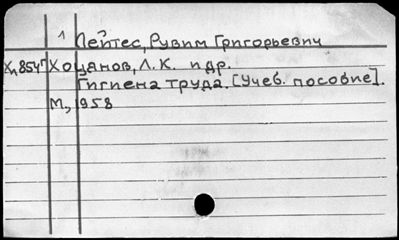 1 Лейтес, Рувим Григорьевич
Хоцанов, Л. К. и др.
Гигиена труда. [Учеб. пособие].
М., 1958